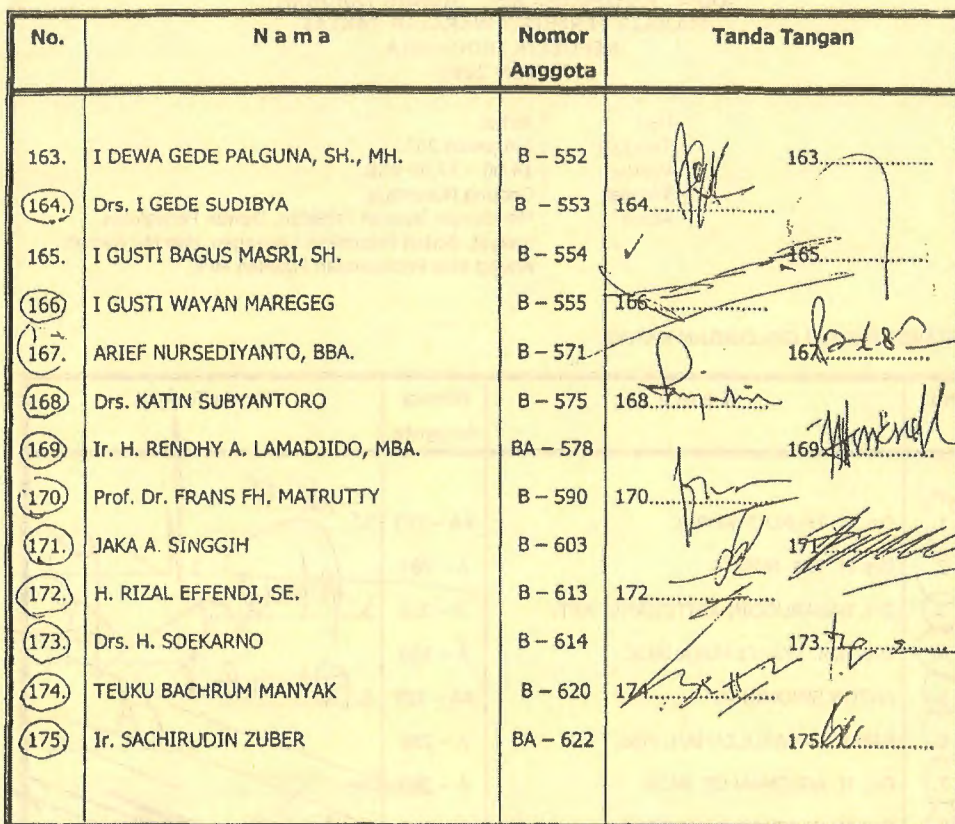 No. N a m a Nomor Anggota Tanda Tangan
163. I DEWA GEDE PALGUNA, SH., MH. B – 552 163
164. Drs. I GEDE SUDIBYA B – 553 164
165. I GUSTI BAGUS MASRI, SH. B – 554 165
166 I GUSTI WAYAN MAREGEG B – 555 166
167. ARIEF NURSEDIYANTO, BBA. B – 571 167
168 Drs. KATIN SUBYANTORO B – 575 168
169. Ir. H. RENDHY A. LAMADJIDO, MBA. BA – 578 169
170 Prof. Dr. FRANS FH. MATRUTTY B – 590 170
171. JAKA A. SINGGIH B – 603 171
172. H. RIZAL EFFENDI, SE. B – 613 172
173. Drs. H. SOEKARNO B – 614 173
174. TEUKU BACHRUM MANYAK B – 620 174
175. Ir. SACHIRUDIN ZUBER BA – 622 175